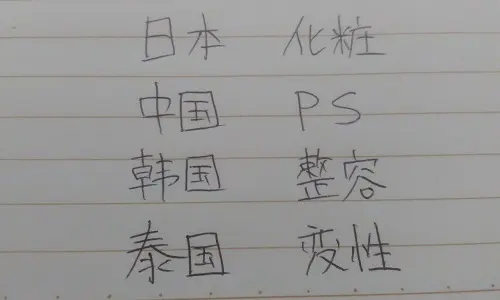 日本 化粧
中国 PS
韩国 整容
泰国 变性